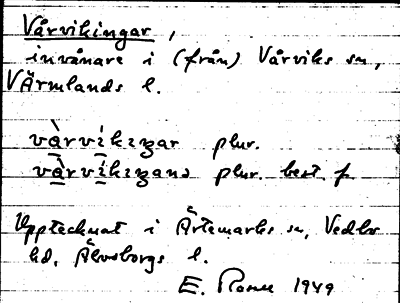 Vårvikingar,
invånare i (från) Vårviks sn,
Värmlands l.
vårvikiŋar plur.
vårvikiŋanɔ plur. best f.
Upptecknat i Ärtemarks sn, Vedbo
hd, Älvsborgs l.
E. Rosner 1949